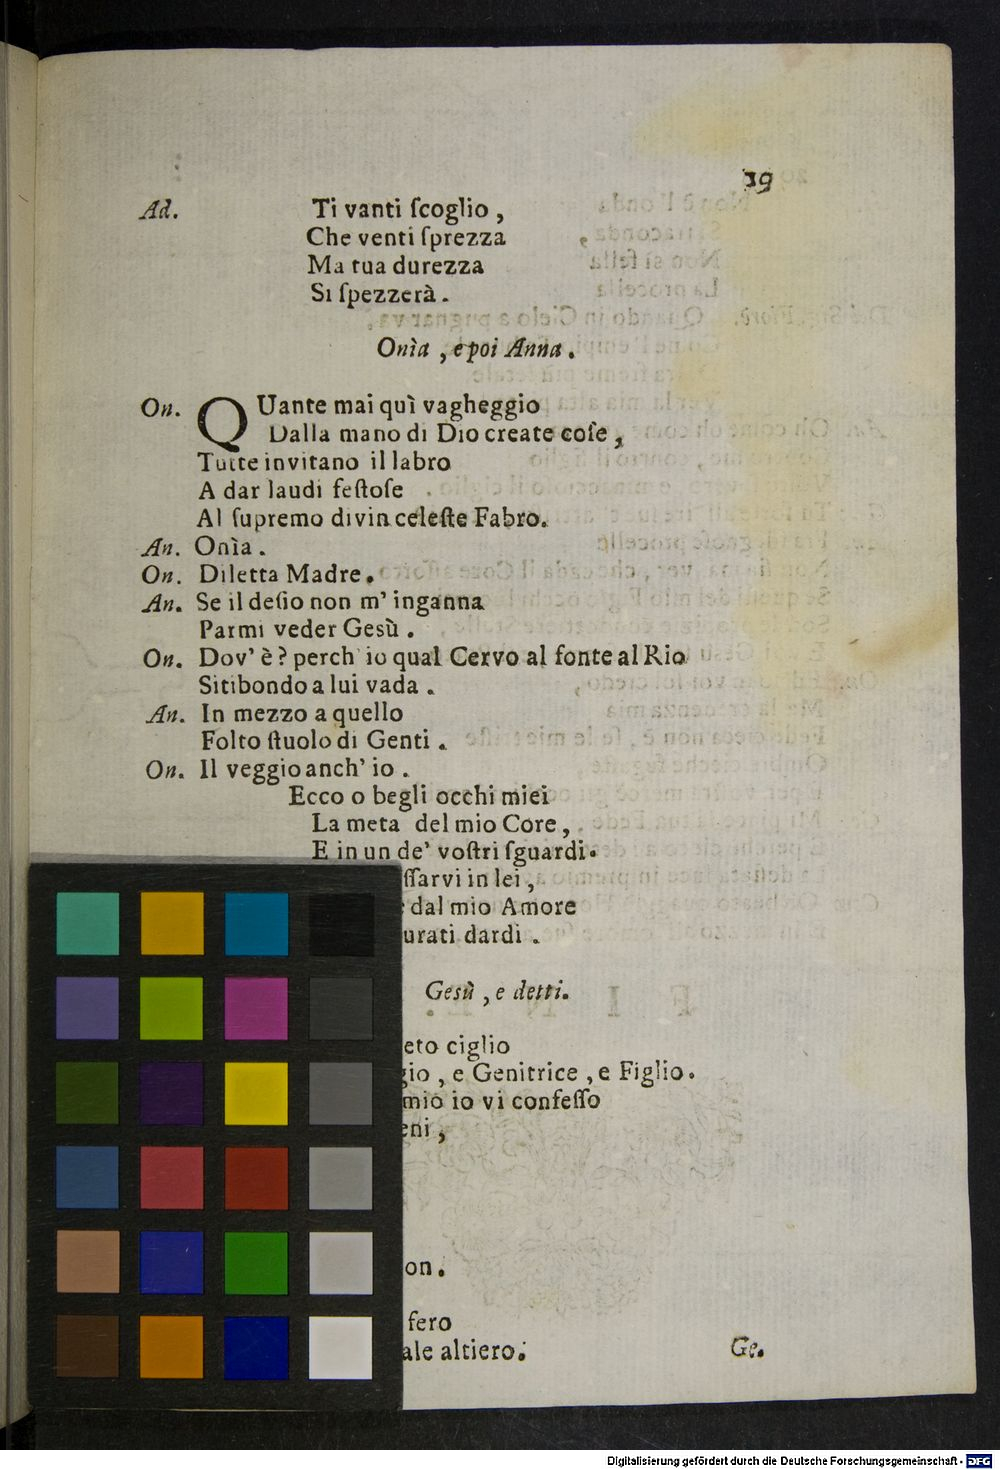 19
Ad. Ti vanti ſcoglio ,
Che venti ſprezza
Ma tua durezza
Si ſpezzerà .
Onìa , e poi Anna .
On. QUante mai quì vagheggio
Dalla mano di Dio create coſe ,
Tutte invitano il labro
A dar laudi feſtoſe
Al ſupremo divin celeſte Fabro.
An. Onìa .
On. Diletta Madre .
An. Se il deſio non m' inganna
Parmi veder Gesù .
On. Dov' è ? perch' io qual Cervo al fonte al Rio
Sitibondo a lui vada .
An. In mezzo a quello
Folto ſtuolo di Genti .
On. Il veggio anch' io .
Ecco o begli occhi miei
La meta del mio Core ,
E in un de' voſtri ſguardi.
ſſarvi in lei ,
dal mio Amore
urati dardi .
Gesù , e detti.
eto ciglio
gio , e Genitrice , e Figlio.
mio io vi confeſſo
eni ,
on.
fero
ale altiero.
Ge.
Digitalisierung gefördert durch die Deutsche Forschungsgemeinschaft - DFG